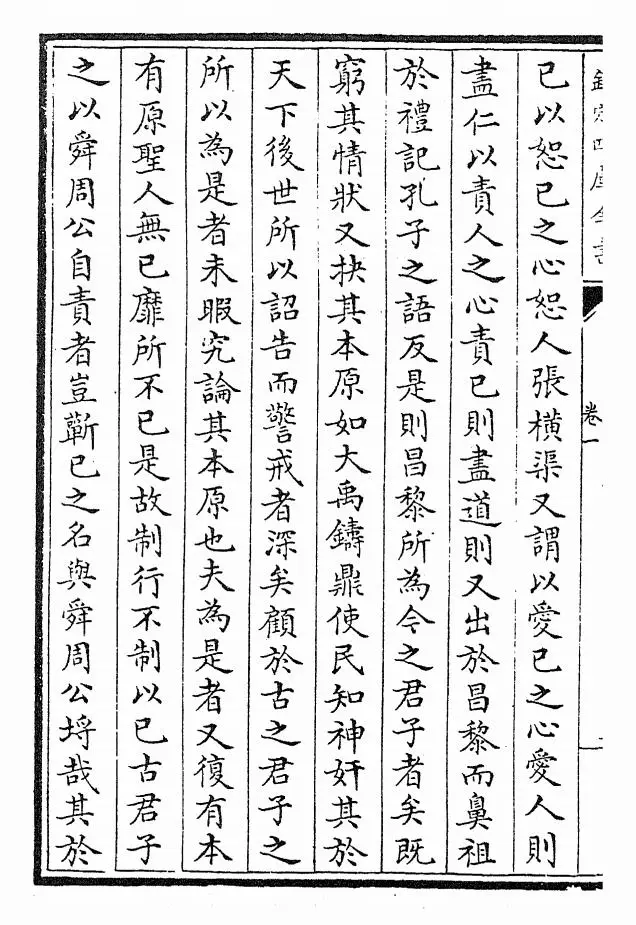 欽定四庫全書
卷一
已以恕已之心恕人張橫渠又謂以愛已之心愛人則
盡仁以責人之心責已則盡道則又出於昌黎而鼻祖
於禮記孔子之語反是則昌黎所為今之君子者矣既
窮其情狀又抉其本原如大禹鑄鼎使民知神奸其於
天下後世所以詔告而警戒者深矣顧於古之君子之
所以為是者未暇究論其本原也夫為是者又復有本
有原聖人無已靡所不已是故制行不制以已古君子
之以舜周公自責者豈蘄已之名與舜周公埒哉其於